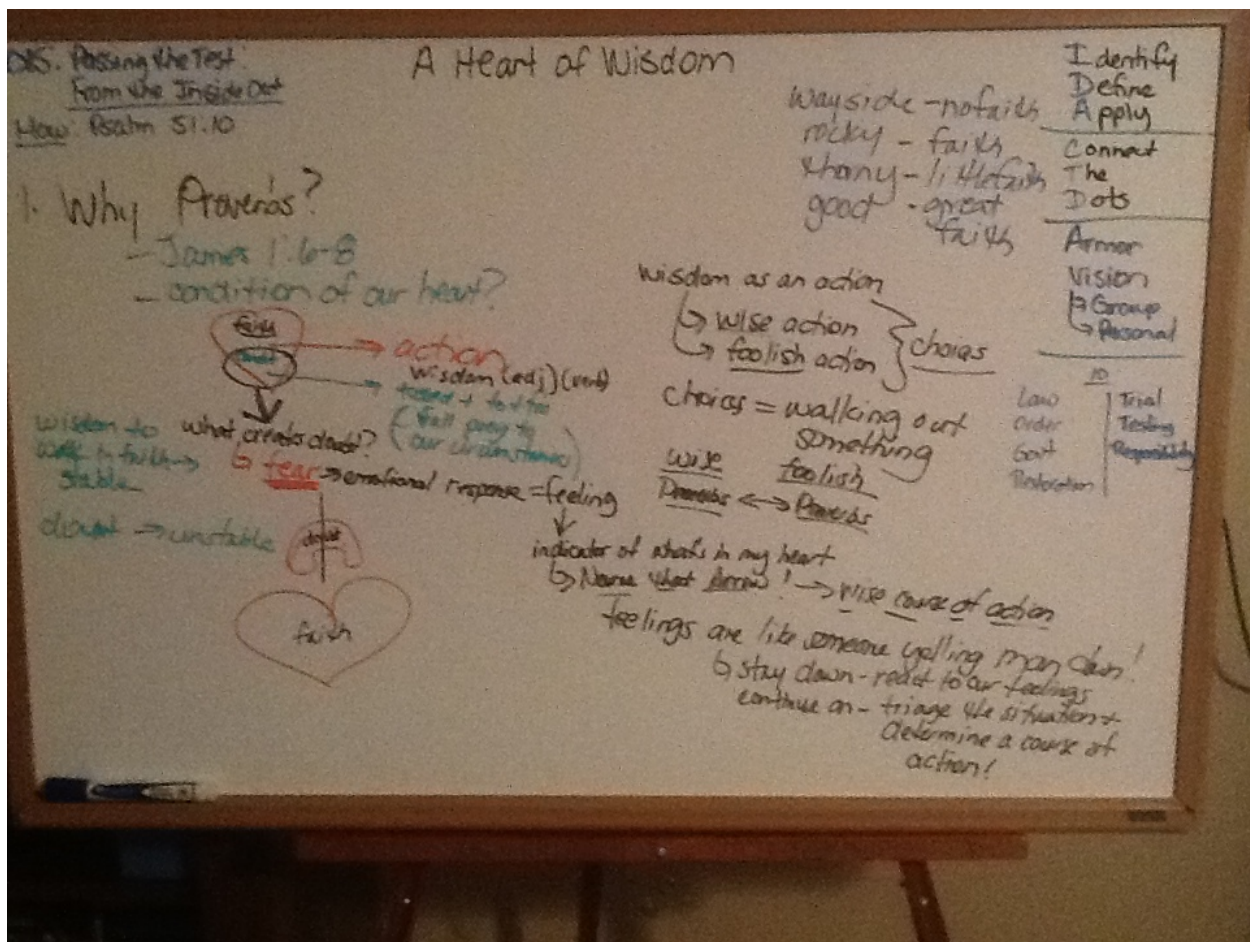 A Heart of Wisdom
OBS: Passing the Test:
From the Inside Out
How: Psalm 51:10
1. Why Proverbs?
- James 1:6-8
- condition of our heart?
faith
→ action
wisdom (adj) (verb)
→ tossed + to + fro
(fall prey to
our circumstances)
what creates doubt?
↳ fear → emotional response = feeling
wisdom to
walk in faith →
stable
doubt → unstable
doubt
faith
indicator of what's in my heart
↳ Name that Arrow! → wise course of action
feelings are like someone yelling man down!
↳ stay down - react to our feelings
continue on - triage the situation +
determine a course of
action!
wayside - no faith
rocky - faith
thorny - little faith
good - great
faith
wisdom as an action
↳ wise action
↳ foolish action
choices
choices = walking out
something
wise foolish
Proverbs ↔ Proverbs
Identify
Define
Apply
Connect
The
Dots
Armor
Vision
↳ Group
↳ Personal
10
Law Trial
Order Testing
Govt Responsibility
Restoration